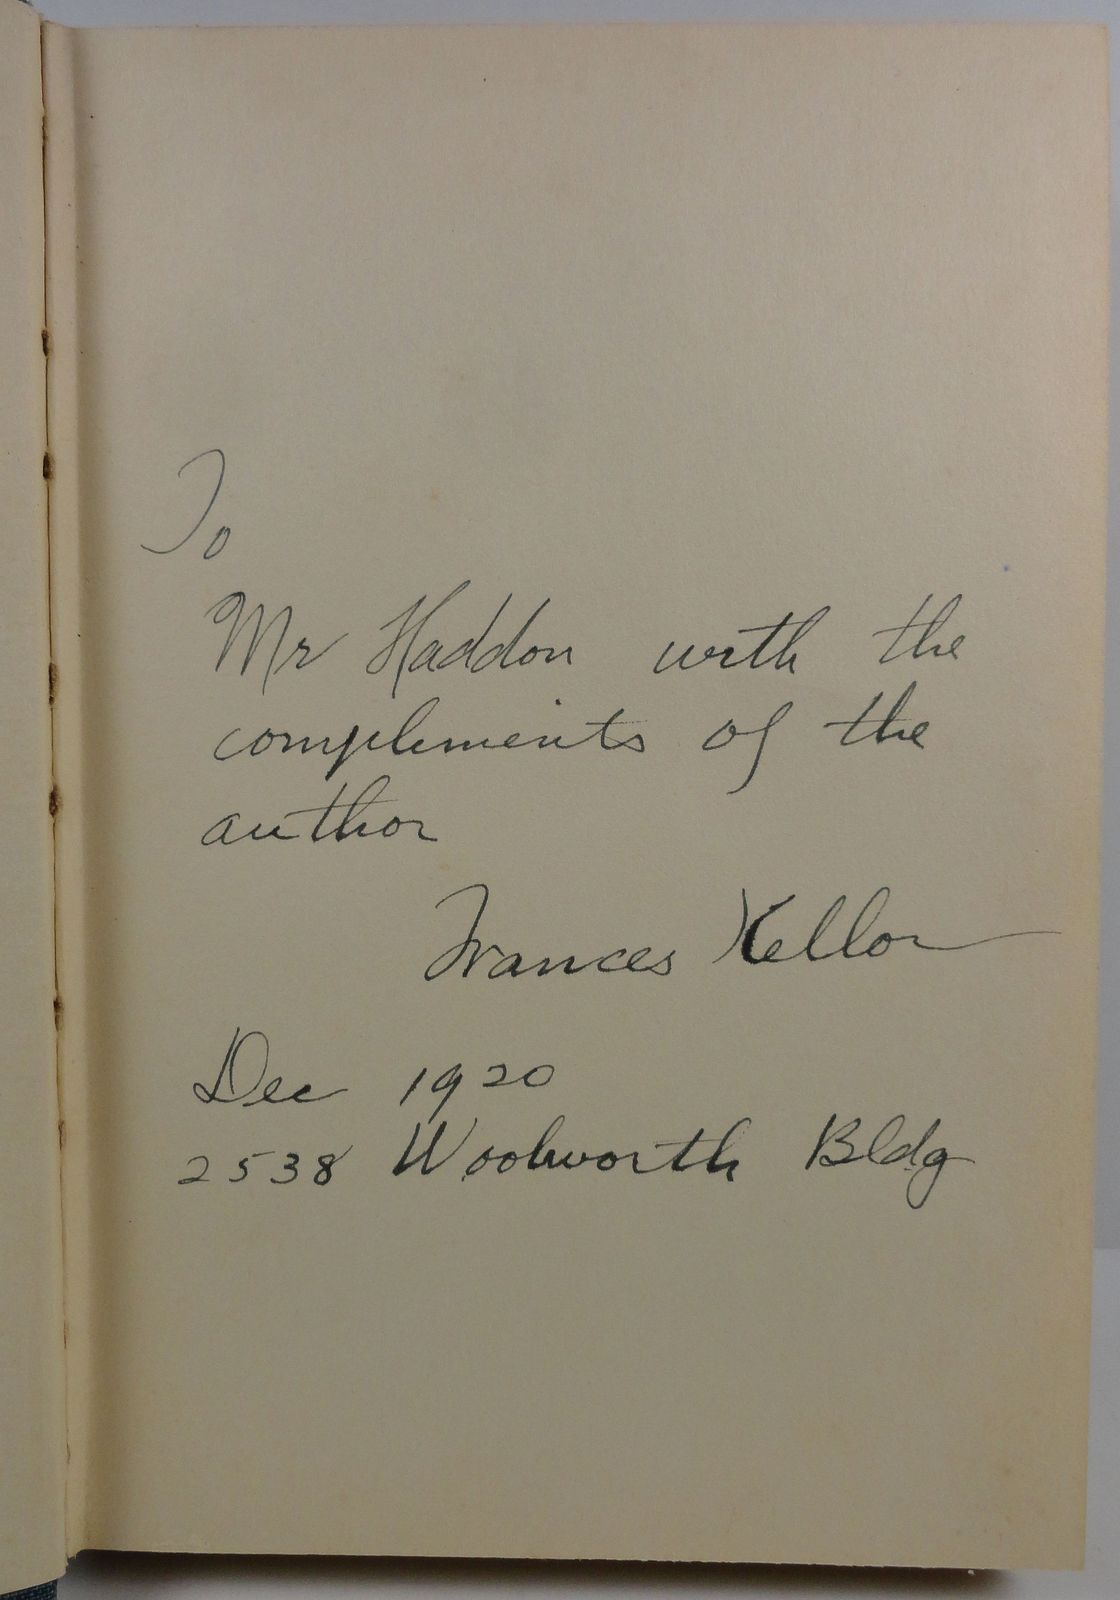 To
Mr Haddon with the
compliments of the
author
Frances Kellor
Dec 1920
2538 Woolworth Bldg